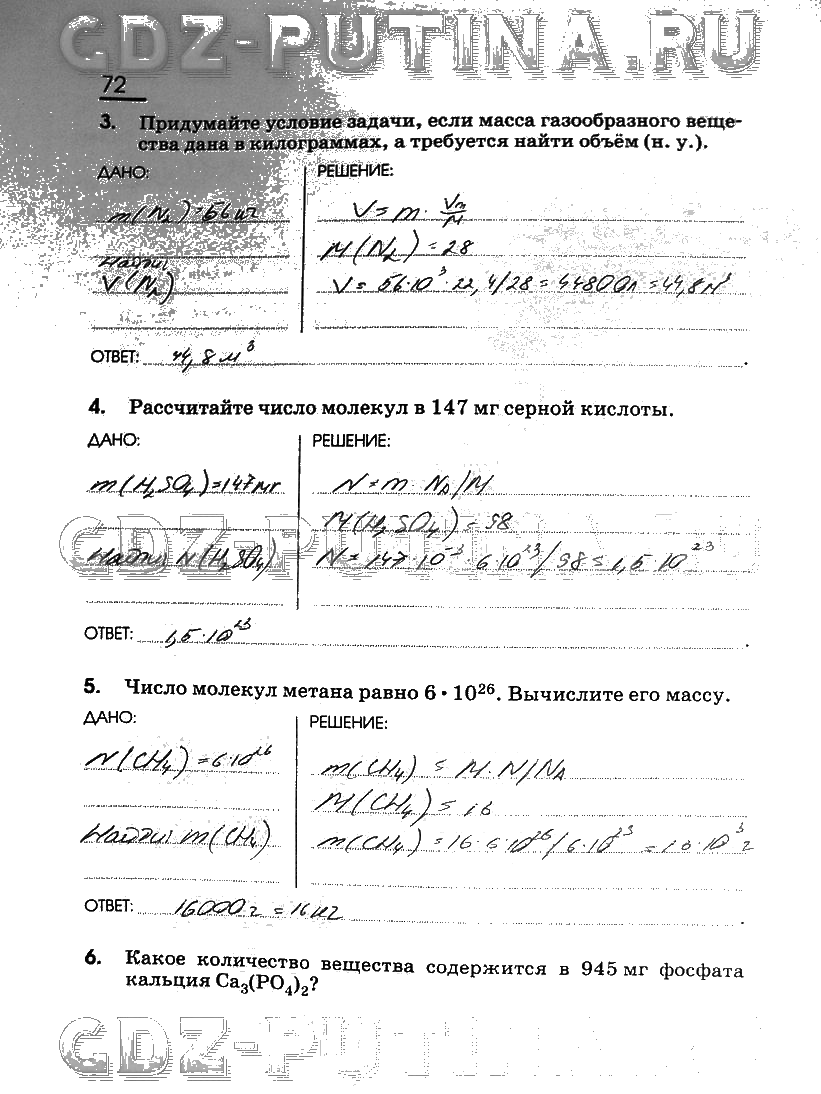 GDZ-PUTINA.RU
72
3. Придумайте условие задачи, если масса газообразного веще-
ства дана в килограммах, а требуется найти объём (н. у.).
ДАНО:
m(N₂)=56 кг
Найти
V(N₂)
РЕШЕНИЕ:
V = m · Vm/M
M(N₂) = 28
V = 56·10³·22,4/28 = 44800л = 44,8м³
ОТВЕТ: 44,8 м³
4. Рассчитайте число молекул в 147 мг серной кислоты.
ДАНО:
m(H₂SO₄)=147мг
Найти N(H₂SO₄)
РЕШЕНИЕ:
N = m · NA/M
M(H₂SO₄) = 98
N = 147·10⁻³·6·10²³/98 = 1,5·10²³
ОТВЕТ: 1,5·10²³
5. Число молекул метана равно 6 • 10²⁶. Вычислите его массу.
ДАНО:
N(CH₄)=6·10²⁶
Найти m(CH₄)
РЕШЕНИЕ:
m(CH₄) = M·N/NA
M(CH₄) = 16
m(CH₄) = 16·6·10²⁶/6·10²³ = 16·10³ г
ОТВЕТ: 16000 г = 16 кг
6. Какое количество вещества содержится в 945 мг фосфата
кальция Ca₃(PO₄)₂?